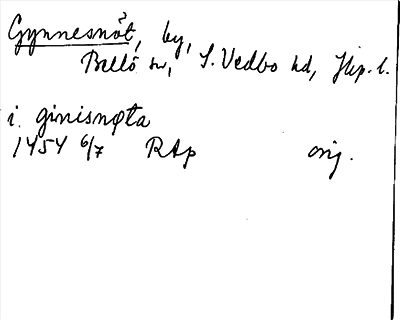 Gynnesnöt, by,
Bellö sn, S. Vedbo hd, Jkp. l.
i. ginisnøta
1454 6/7 RAp orig.